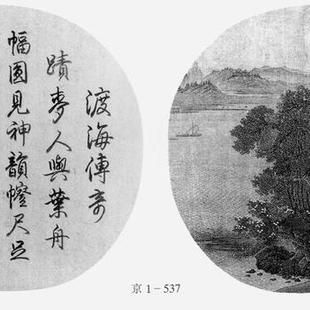 渡海傳奇
蹟夢人與葉舟
幅圖見神韻幢尺足
京 1－537